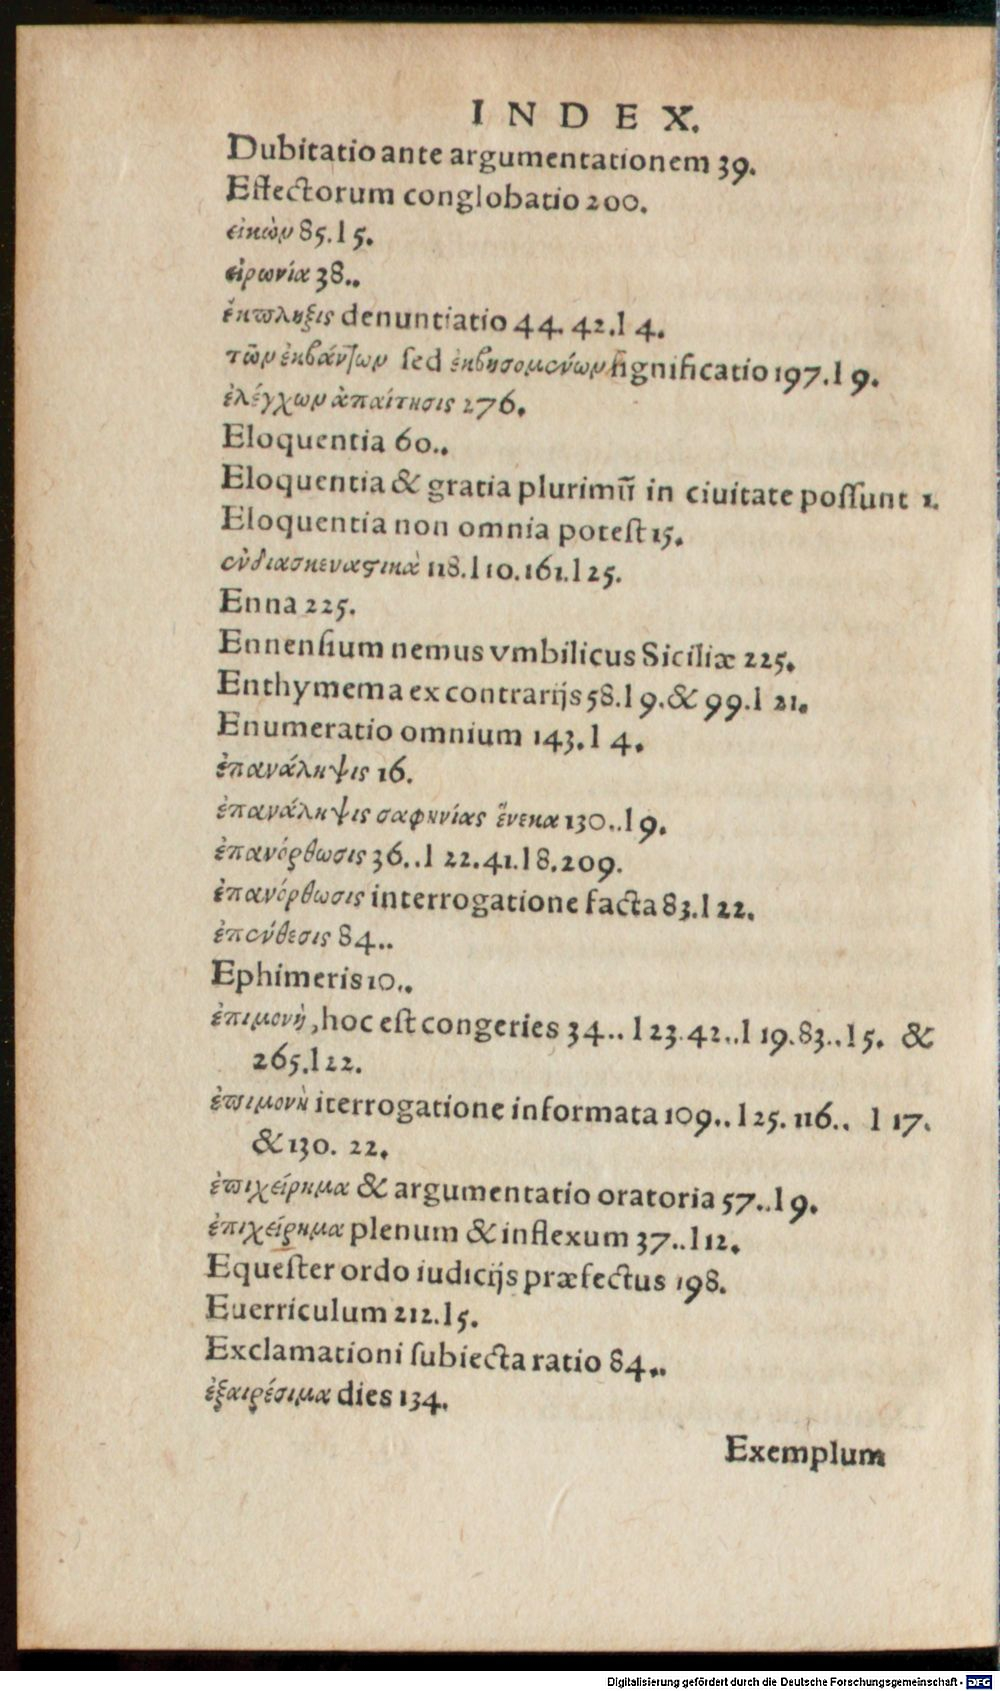 INDEX.
Dubitatio ante argumentationem 39.
Effectorum conglobatio 200.
εἰκὼν 85.l 5.
εἰρωνία 38..
ἔκπληξις denuntiatio 44. 42.l 4.
τῶν ἐκβάντων sed ἐκβησομένων ſignificatio 197.l 9.
ἐλέγχων ἀπαίτησις 276.
Eloquentia 60..
Eloquentia & gratia plurimū in ciuitate poſſunt 1.
Eloquentia non omnia poteſt 15.
ἐνδιασκευαστικὰ 118.l 10.161.l 25.
Enna 225.
Ennenſium nemus vmbilicus Siciliæ 225.
Enthymema ex contrarijs 58.l 9.& 99.l 21.
Enumeratio omnium 143.l 4.
ἐπανάληψις 16.
ἐπανάληψις σαφηνίας ἕνεκα 130..l 9.
ἐπανόρθωσις 36..l 22.41.l 8.209.
ἐπανόρθωσις interrogatione facta 83.l 22.
ἐπένθεσις 84..
Ephimeris 10..
ἐπιμονὴ, hoc eſt congeries 34.. l 23.42..l 19.83..l 5. &
265.l 22.
ἐπιμονὴ iterrogatione informata 109..l 25. 116.. l 17.
& 130. 22.
ἐπιχείρημα & argumentatio oratoria 57..l 9.
ἐπιχείρημα plenum & inflexum 37..l 12.
Equeſter ordo iudicijs præfectus 198.
Euerriculum 212.l 5.
Exclamationi ſubiecta ratio 84..
ἐξαιρέσιμα dies 134.
Exemplum
Digitalisierung gefördert durch die Deutsche Forschungsgemeinschaft - DFG